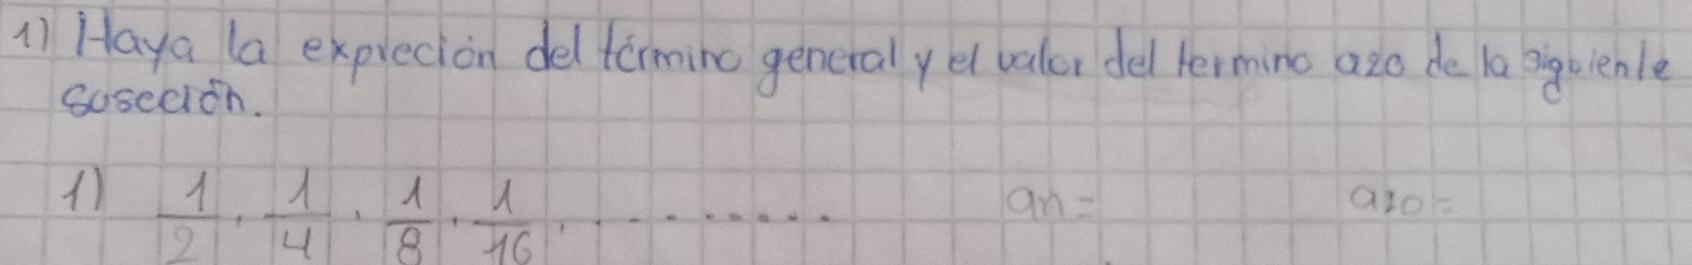 1) Haya la expreción del término general y el valor del termino a20 de la siguiente
suseción.
1) 1/2, 1/4, 1/8, 1/16, ......... an= a20=